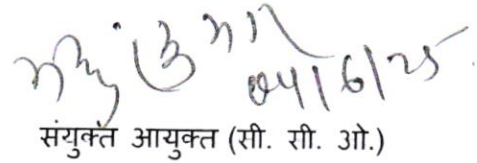 04/6/25
संयुक्त आयुक्त (सी. सी. ओ.)